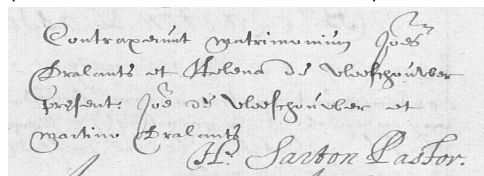 Contraxerunt matrimonium Joës
Bralants et Helena de Vleeschouwer
present: Joē de Vleeschouwer et
martino Bralants
H. Sarton Pastor.